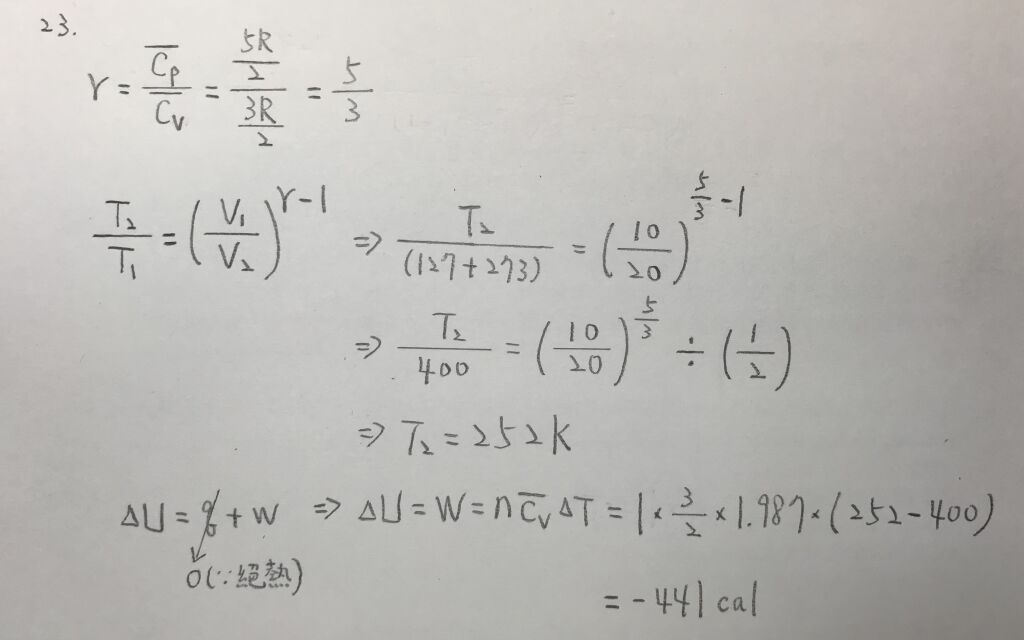 23.
γ = C̅p / C̅v = (5R/2) / (3R/2) = 5/3
T₂/T₁ = (V₁/V₂)^(γ-1) ⇒ T₂/(127+273) = (10/20)^(5/3 - 1)
⇒ T₂/400 = (10/20)^(5/3) ÷ (1/2)
⇒ T₂ = 252K
ΔU = q + w ⇒ ΔU = W = n C̅v ΔT = 1 × 3/2 × 1.987 × (252-400)
0(∵絕熱)
= -441 cal